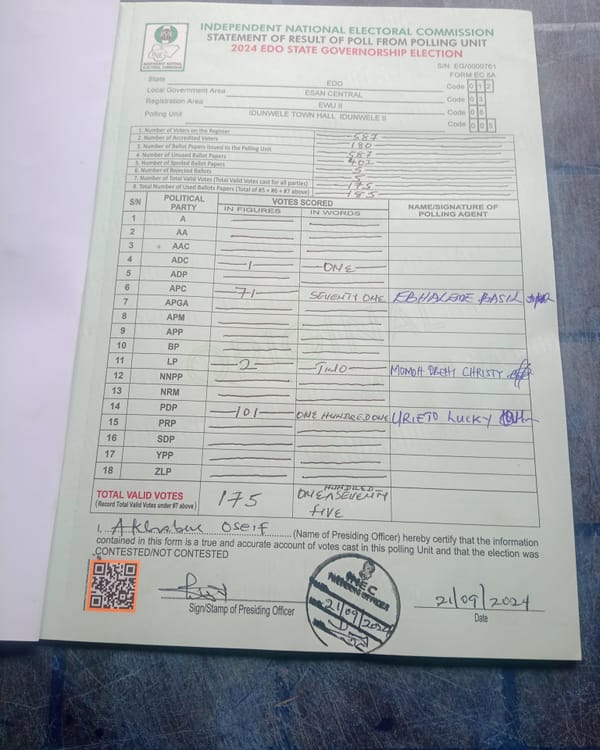 INDEPENDENT NATIONAL ELECTORAL COMMISSION
STATEMENT OF RESULT OF POLL FROM POLLING UNIT
2024 EDO STATE GOVERNORSHIP ELECTION
INEC
INDEPENDENT NATIONAL ELECTORAL COMMISSION
S/N: EG/0000761
FORM EC 8A
State EDO Code 0 1 2
Local Government Area ESAN CENTRAL Code 0 3
Registration Area EWU II Code 0 6
Polling Unit IDUNWELE TOWN HALL IDUNWELE II Code 0 0 6
1. Number of Voters on the Register 587
2. Number of Accredited Voters 180
3. Number of Ballot Papers Issued to the Polling Unit 587
4. Number of Unused Ballot Papers 402
5. Number of Spoiled Ballot Papers 5
6. Number of Rejected Ballots 5
7. Number of Total Valid Votes (Total Valid Votes cast for all parties) 175
8. Total Number of Used Ballots Papers (Total of #5 + #6 + #7 above) 185
S/N POLITICAL PARTY VOTES SCORED NAME/SIGNATURE OF POLLING AGENT
IN FIGURES IN WORDS
1 A
2 AA
3 AAC
4 ADC 1 ONE
5 ADP
6 APC 71 SEVENTY ONE EBHALEME BASIL
7 APGA
8 APM
9 APP
10 BP
11 LP 2 TWO MOMOH CHRISTY
12 NNPP
13 NRM
14 PDP 101 ONE HUNDRED ONE URIETO LUCKY
15 PRP
16 SDP
17 YPP
18 ZLP
TOTAL VALID VOTES 175 ONE HUNDRED & SEVENTY FIVE
(Record Total Valid Votes under #7 above)
I, Oseif (Name of Presiding Officer) hereby certify that the information
contained in this form is a true and accurate account of votes cast in this polling Unit and that the election was
CONTESTED/NOT CONTESTED
INEC
PRESIDING OFFICER
21/09/2024
21/09/2024
Sign/Stamp of Presiding Officer
Date